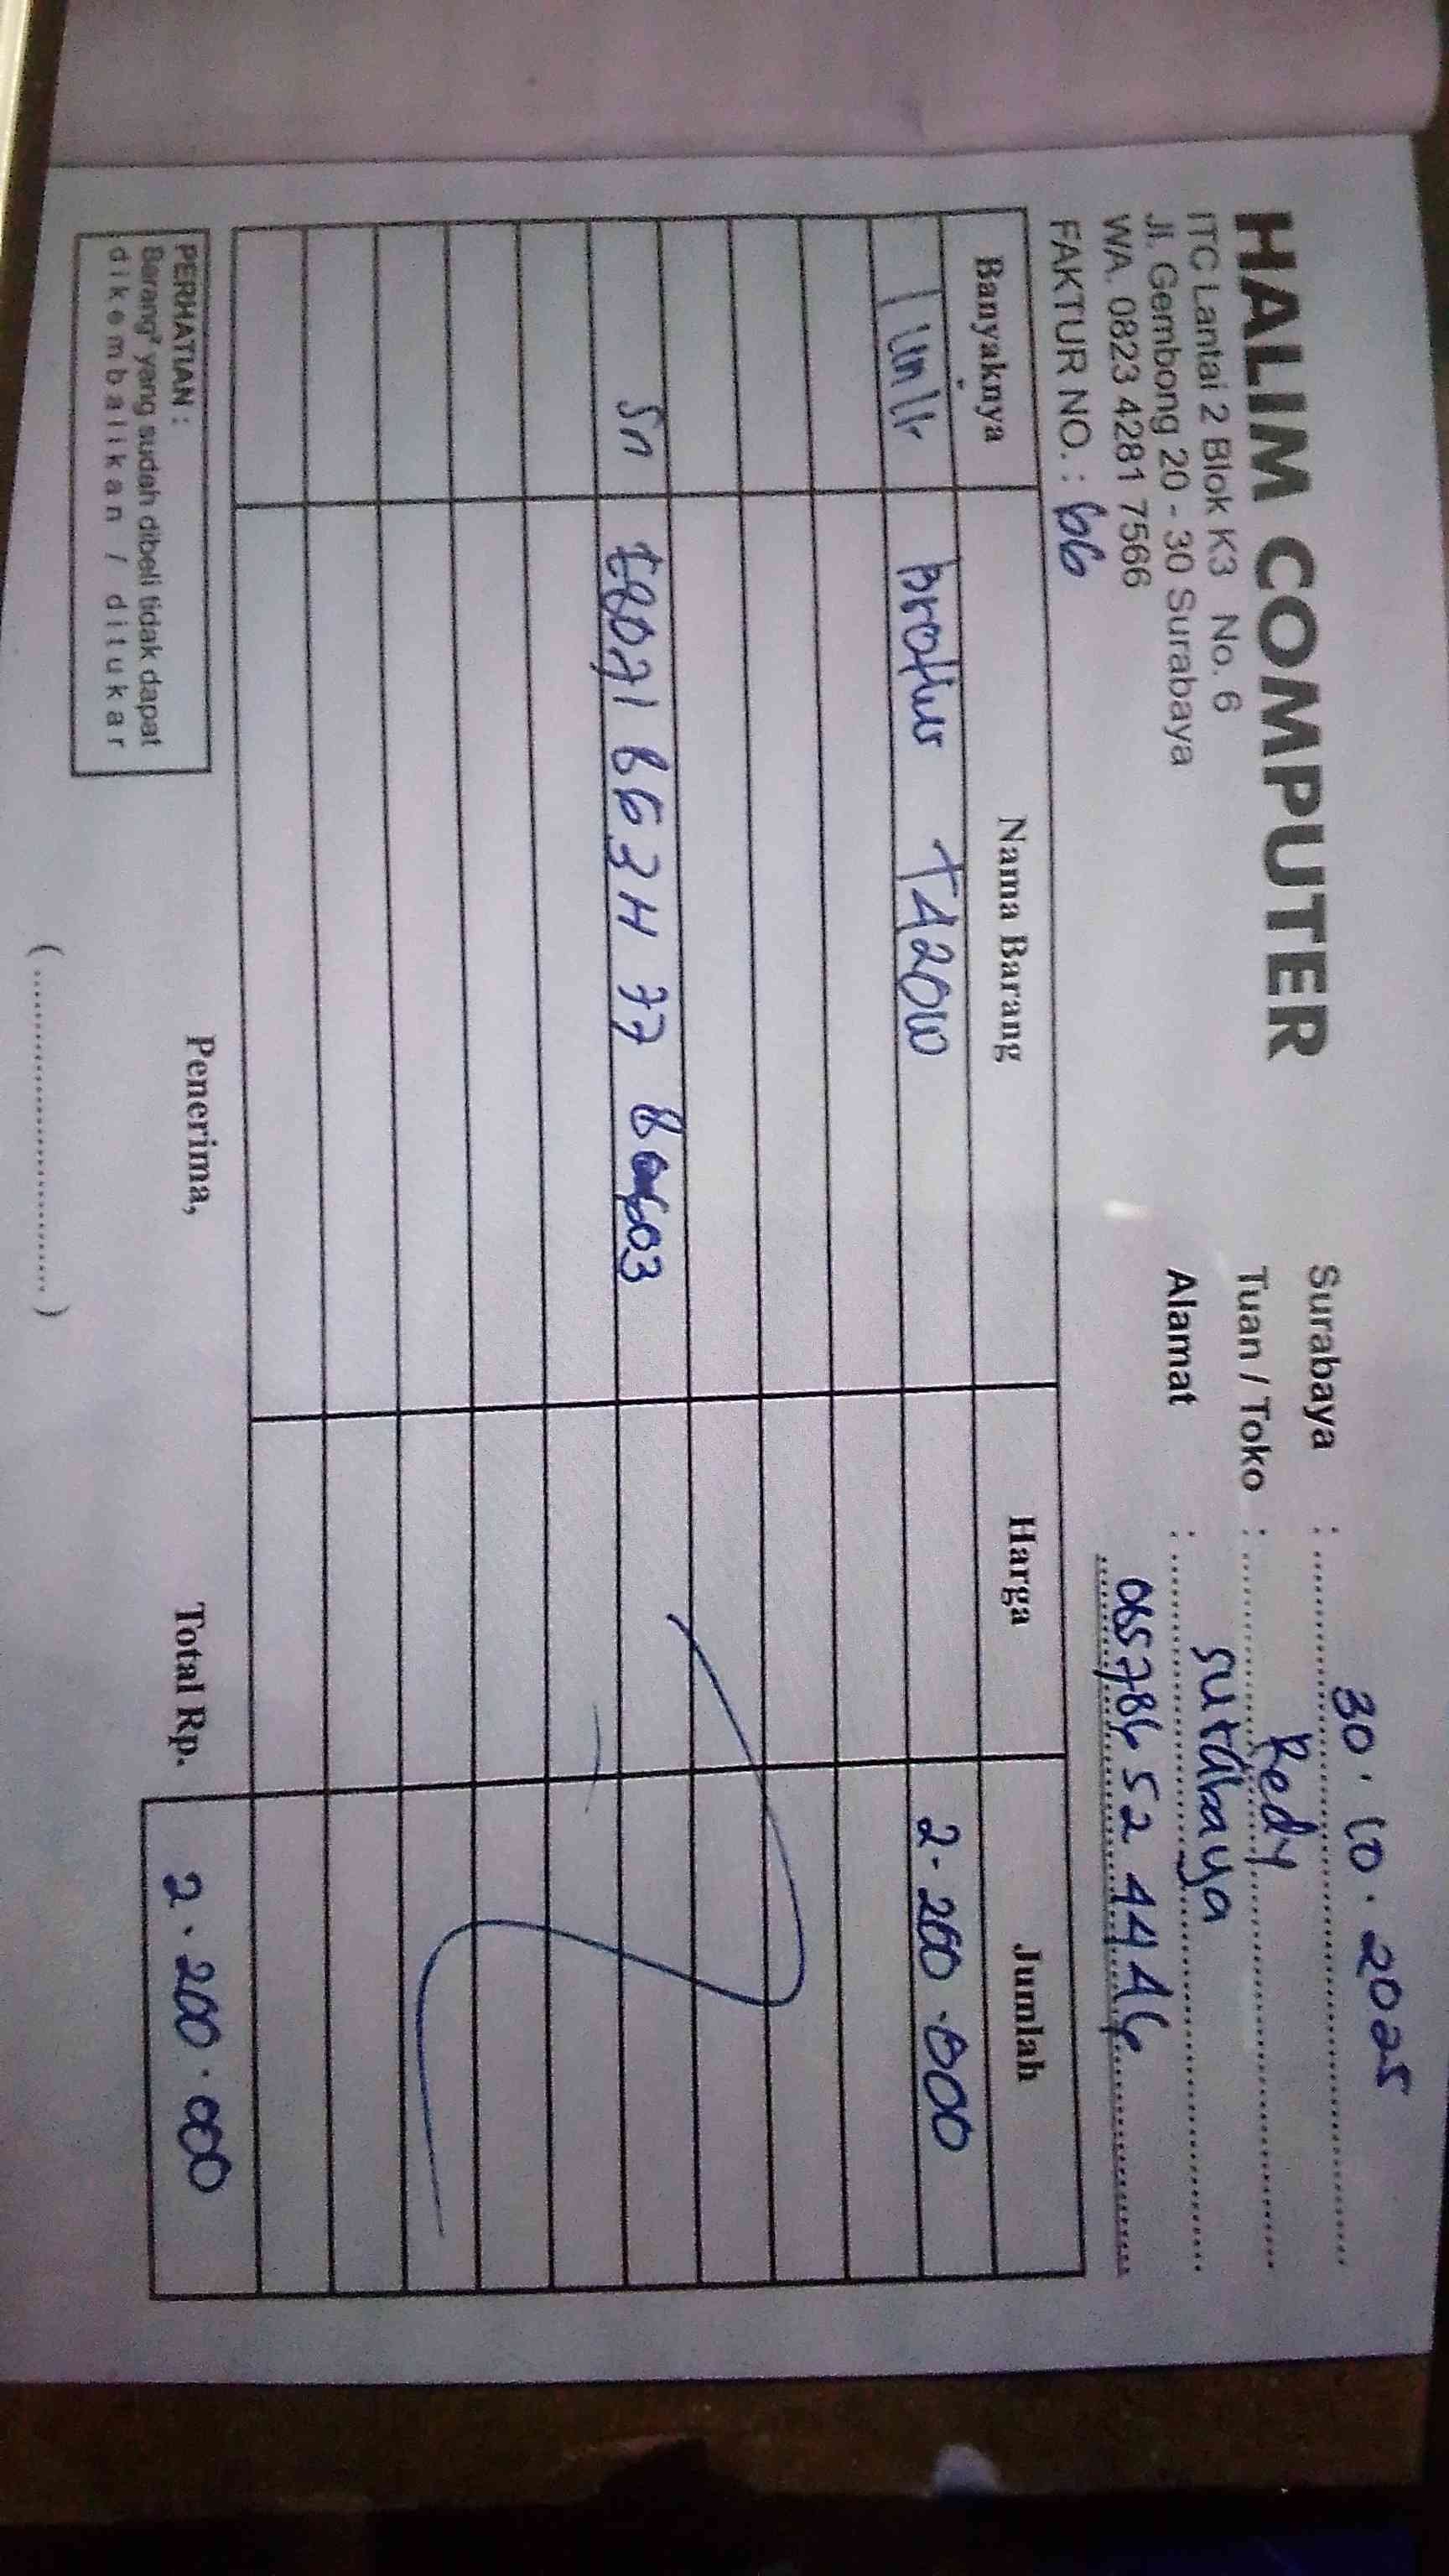 HALIM COMPUTER
ITC Lantai 2 Blok K3 No. 6
Jl. Gembong 20 - 30 Surabaya
WA. 0823 4281 7566
FAKTUR NO. : 66
Surabaya : 30.10.2025
Tuan / Toko : Redy
Alamat : Surabaya
085 786 52 4446
Banyaknya Nama Barang Harga Jumlah
1 unit brother T420W 2.200.000
Sn
Total Rp. 2.200.000
Penerima,
PERHATIAN :
Barang² yang sudah dibeli tidak dapat
dikembalikan / ditukar